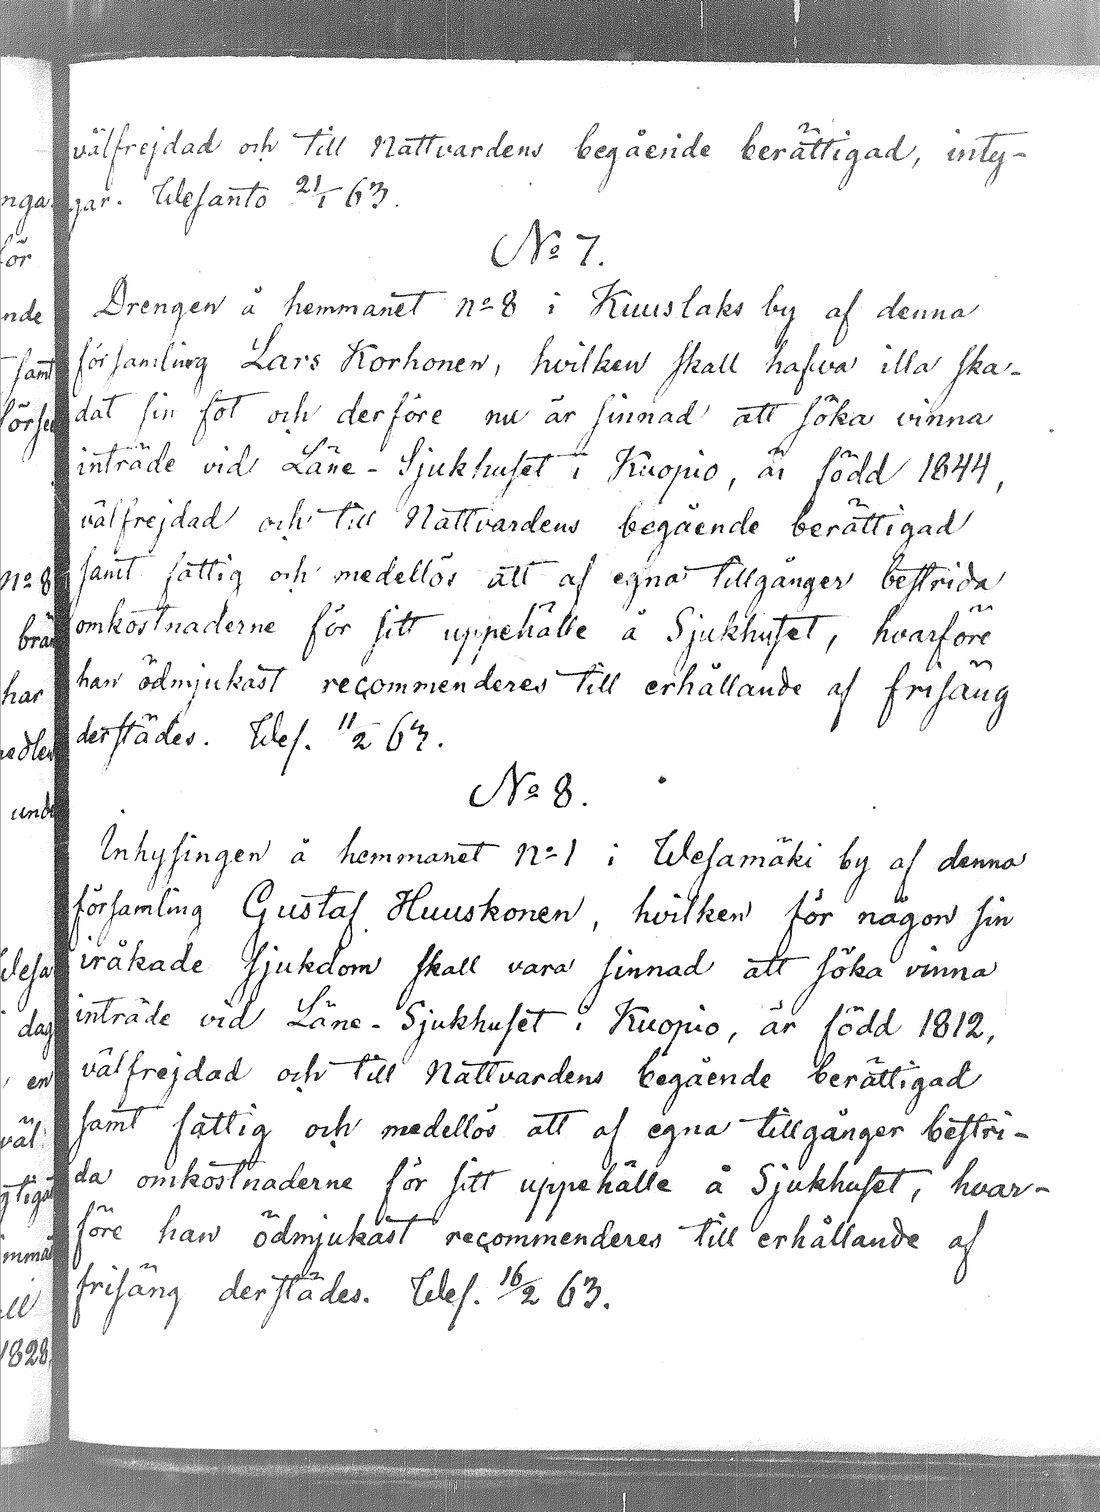 välfrejdad och till Nattvardens begående berättigad, inty-
gar. Wesanto 21/1 63.
No 7.
Drengen å hemmanet no 8 i Kuuslaks by af denna
församling Lars Korhonen, hvilken skall hafva illa ska-
dat sin fot och derföre nu är sinnad att söka vinna
inträde vid Läne-Sjukhuset i Kuopio, är född 1844,
välfrejdad och till Nattvardens begående berättigad
samt fattig och medellös att af egna tillgånger bestrida
omkostnaderne för sitt uppehälle å Sjukhuset, hvarföre
han ödmjukast recommenderes till erhållande af frisäng
derstädes. Wes. 11/2 63.
No 8.
Inhysingen å hemmanet no 1 i Wesamäki by af denna
församling Gustaf Huuskonen, hvilken för någon sin
iråkade sjukdom skall vara sinnad att söka vinna
inträde vid Läne-Sjukhuset i Kuopio, är född 1812,
välfrejdad och till Nattvardens begående berättigad
samt fattig och medellös att af egna tillgånger bestri-
da omkostnaderne för sitt uppehälle å Sjukhuset, hvar-
före han ödmjukast recommenderes till erhållande af
frisäng derstädes. Wes. 16/2 63.